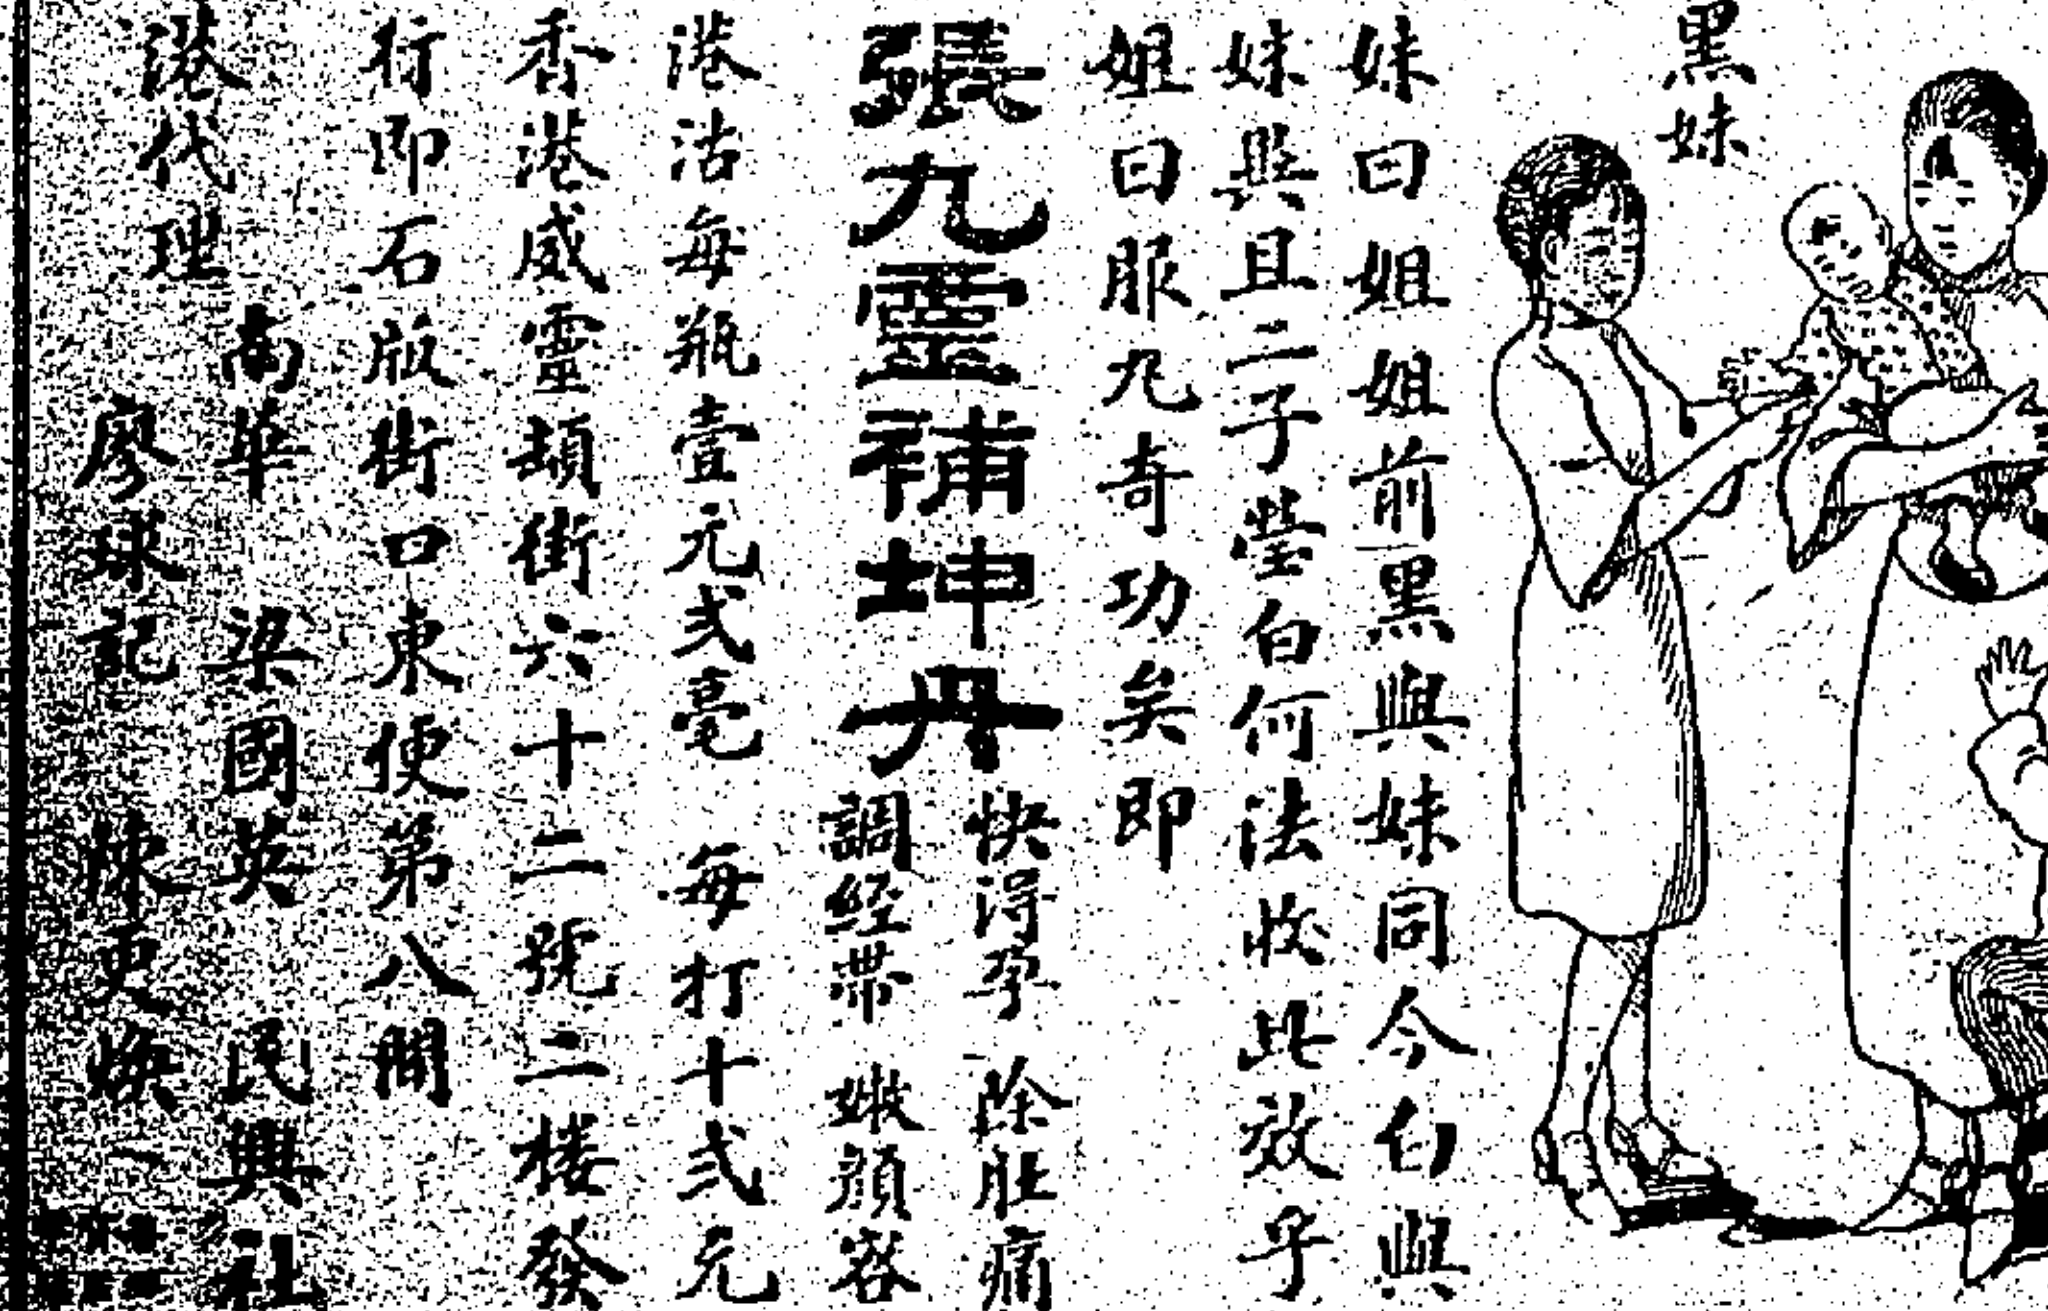 黑妹
妹曰姐姐前黑與妹同今白與
妹與且二子瑩白何法收此效乎
姐曰服九奇功矣即
張九靈補坤丹
快得孕 除肚痛
調經帶 嫩顏容
港沽每瓶壹元弍毫 每打十弍元
香港威靈頓街六十二號二楼發
行即石版街口東便第八間
港代理
南華 梁國英 民興社
廖球記 陳更煥